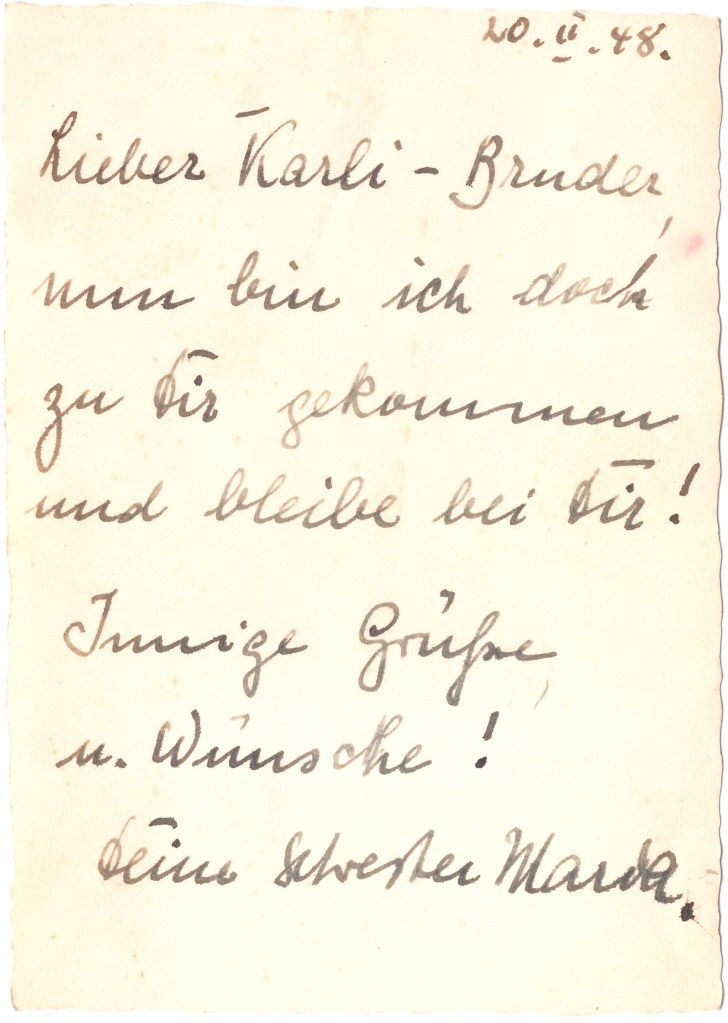 20.II.48.
Lieber Karli - Bruder,
nun bin ich doch
zu Dir gekommen
und bleibe bei Dir!
Innige Grüße
u. Wünsche!
Deine Schwester